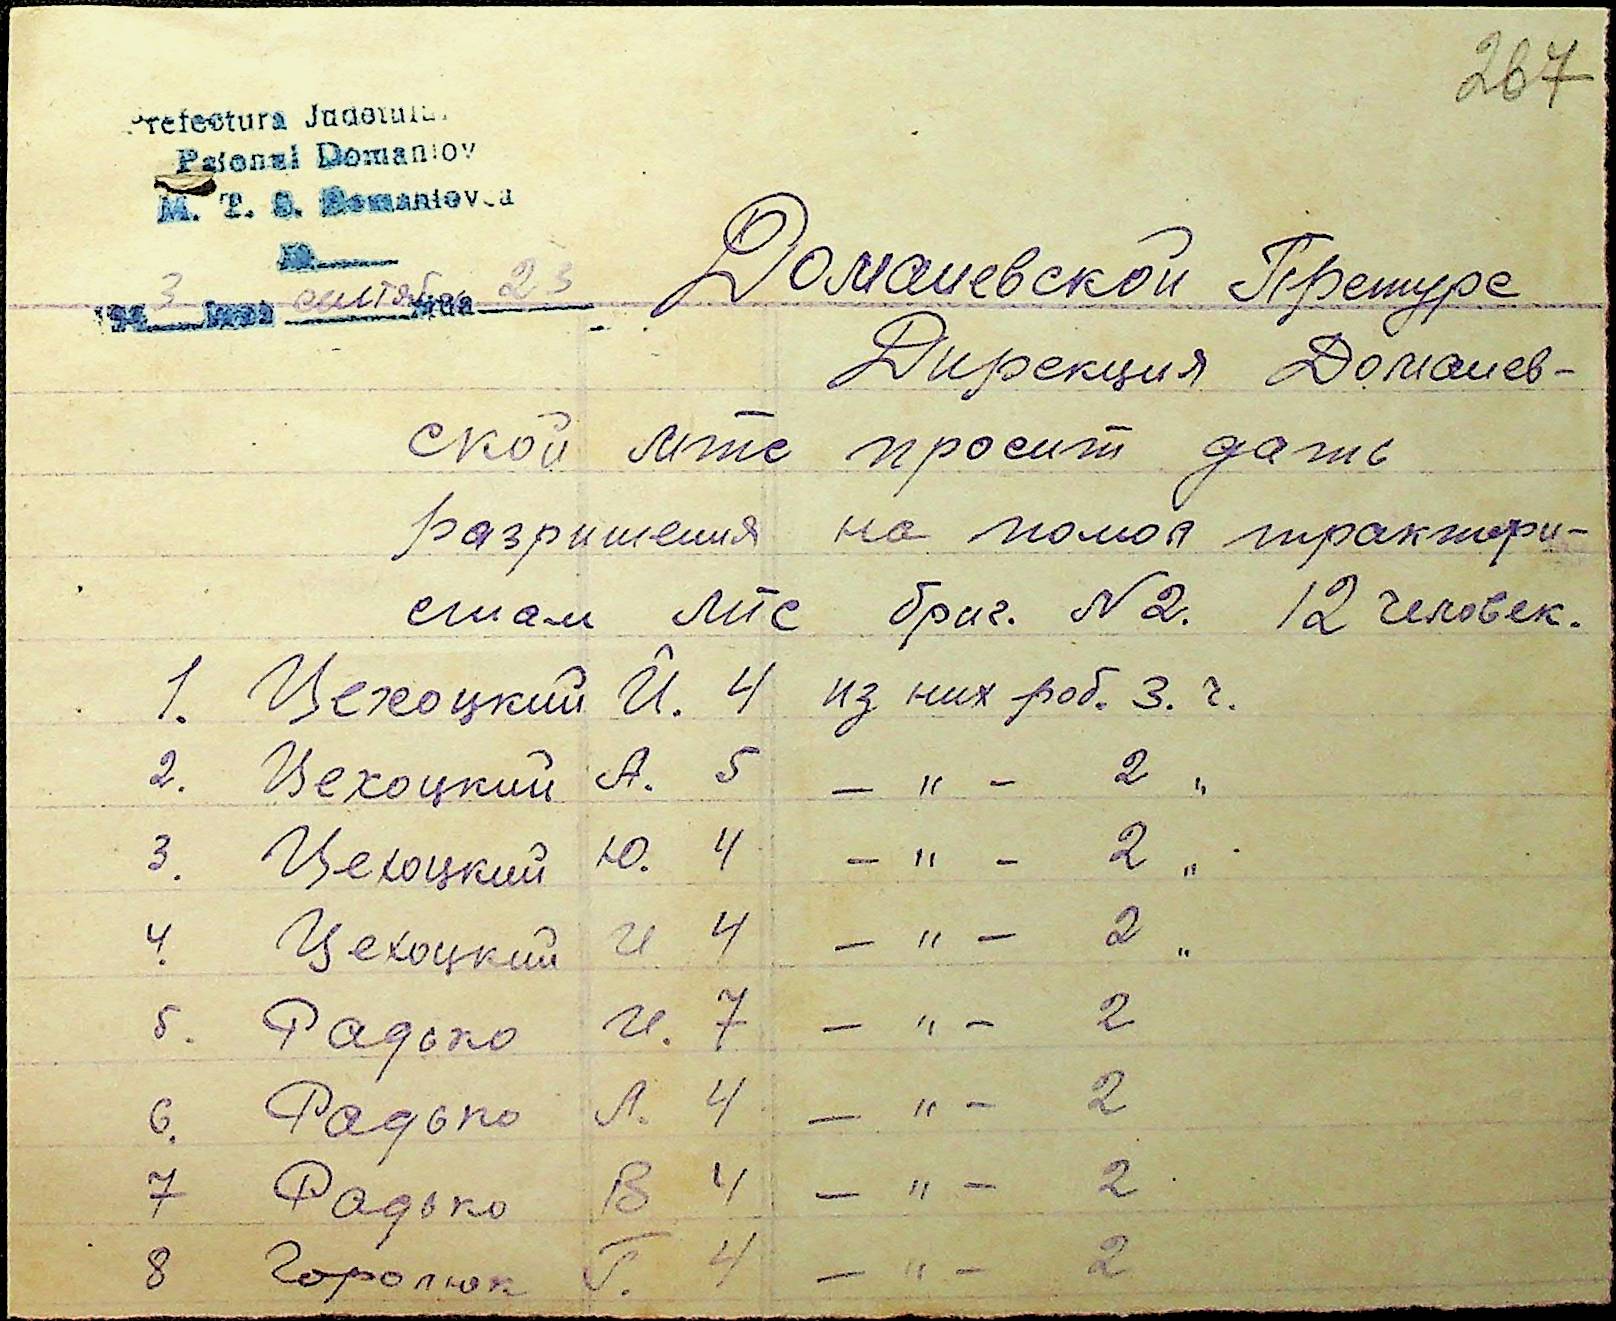 267
Prefectura Judetului
Raional Domaniov
M. T. S. Domaniovca
No
1943 Luna сентябр Ziua 23
Доманевской Претуре
Дирекция Доманев-
ской мтс просит дать
разришения на помол трактори-
стам мтс бриг. N2. 12 человек.
1. Цехоцкий Й. 4 из них роб. 3. ч.
2. Цехоцкий А. 5 — " — 2 "
3. Цехоцкий Ю. 4 — " — 2 "
4. Цехоцкий И 4 — " — 2 "
5. Радько И. 7 — " — 2
6. Радько Л. 4 — " — 2
7 Радько В 4 — " — 2
8 Горолюк Г. 4 — " — 2